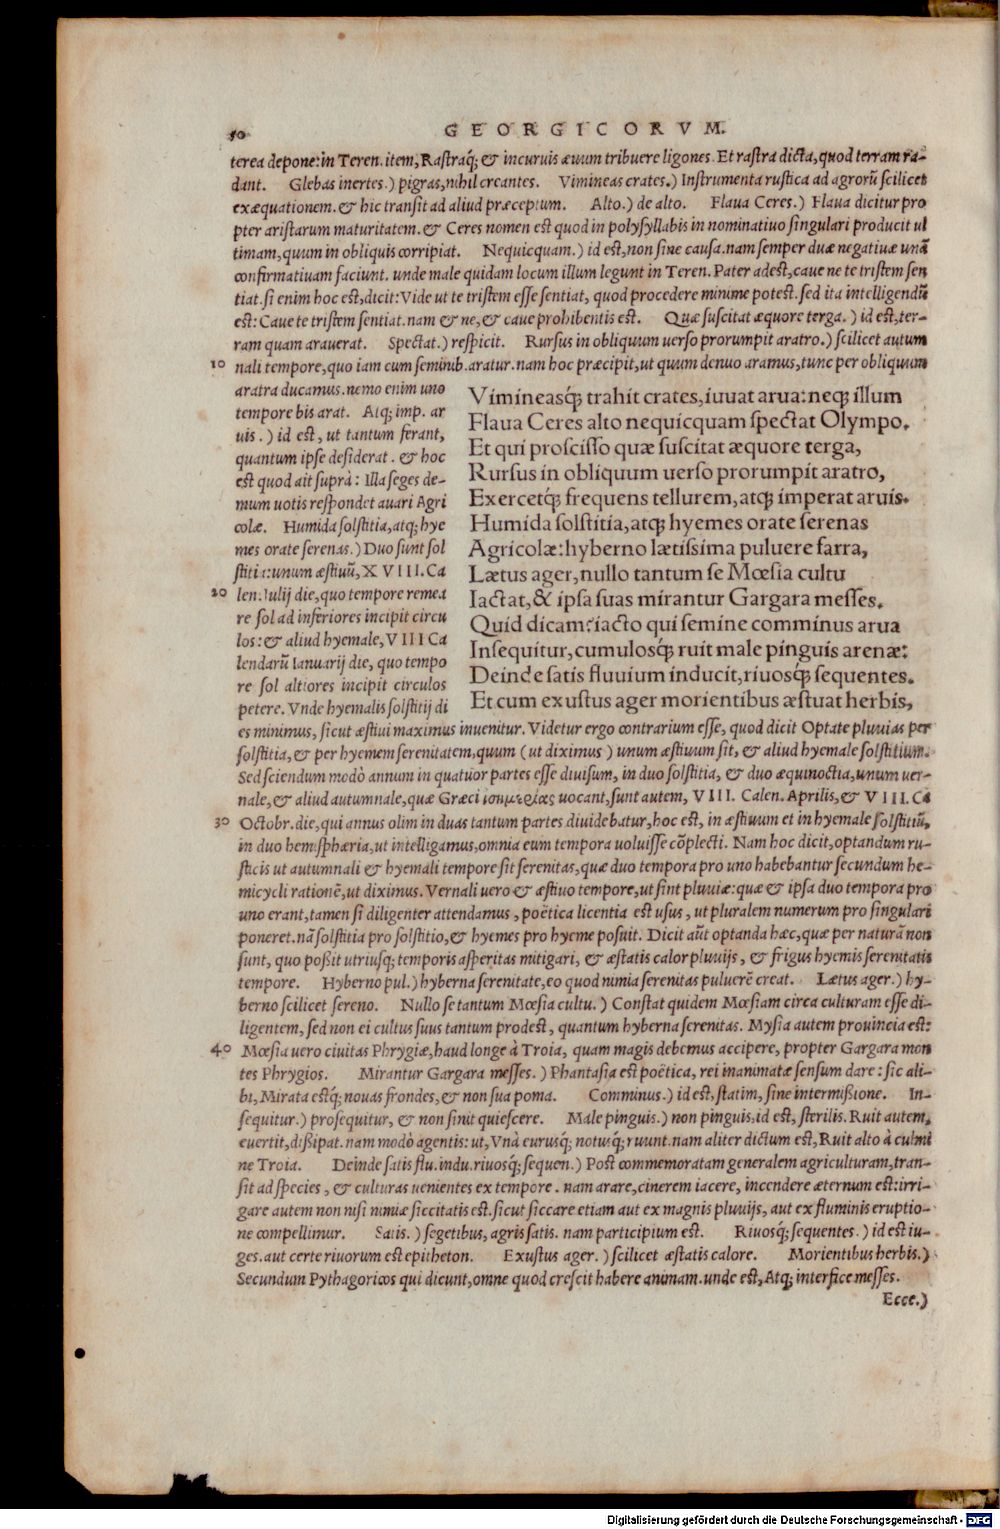 50
GEORGICORVM.
terea depone: in Teren. item, Rastraq́; & incuruis æuum tribuere ligones. Et rastra dicta, quod terram ra-
dant. Glebas inertes.) pigras, nihil creantes. Vimineas crates.) Instrumenta rustica ad agrorũ scilicet
exæquationem. & hic transit ad aliud præceptum. Alto.) de alto. Flaua Ceres.) Flaua dicitur pro
pter aristarum maturitatem. & Ceres nomen est quod in polysyllabis in nominatiuo singulari producit ul
timam, quum in obliquis corripiat. Nequicquam.) id est, non sine causa. nam semper duæ negatiuæ unã
confirmatiuam faciunt. unde male quidam locum illum legunt in Teren. Pater adest, caue ne te tristem sen
tiat. si enim hoc est, dicit: Vide ut te tristem esse sentiat, quod procedere minime potest. sed ita intelligendũ
est: Caue te tristem sentiat. nam & ne, & caue prohibentis est. Quæ suscitat æquore terga.) id est, ter-
ram quam arauerat. Spectat.) respicit. Rursus in obliquum uerso prorumpit aratro.) scilicet autum
10 nali tempore, quo iam cum seminib. aratur. nam hoc præcipit, ut quum denuo aramus, tunc per obliquum
aratra ducamus. nemo enim uno
tempore bis arat. Atq; imp. ar
uis.) id est, ut tantum ferant,
quantum ipse desiderat. & hoc
est quod ait suprà: Illa seges de-
mum uotis respondet auari Agri
colæ. Humida solstitia, atq; hye
mes orate serenas.) Duo sunt sol
stitia: unum æstiuũ, XVIII. Ca
20 len. Iulij die, quo tempore remea
re sol ad inferiores incipit circu
los: & aliud hyemale, VIII Ca
lendarũ Ianuarij die, quo tempo
re sol altiores incipit circulos
petere. Vnde hyemalis solstitij di
Vimineasq́; trahit crates, iuuat arua: neq; illum
Flaua Ceres alto nequicquam spectat Olympo.
Et qui proscisso quæ suscitat æquore terga,
Rursus in obliquum uerso prorumpit aratro,
Exercetq́; frequens tellurem, atq; imperat aruis.
Humida solstitia, atq; hyemes orate serenas
Agricolæ: hyberno lætissima puluere farra,
Lætus ager, nullo tantum se Mœsia cultu
Iactat, & ipsa suas mirantur Gargara messes.
Quid dicam? iacto qui semine comminus arua
Insequitur, cumulosq́; ruit male pinguis arenæ:
Deinde satis fluuium inducit, riuosq́; sequentes.
Et cum exustus ager morientibus æstuat herbis,
es minimus, sicut æstiui maximus inuenitur. Videtur ergo contrarium esse, quod dicit Optate pluuias per
solstitia, & per hyemem serenitatem, quum (ut diximus) unum æstiuum sit, & aliud hyemale solstitium.
Sed sciendum modò annum in quatuor partes esse diuisum, in duo solstitia, & duo æquinoctia, unum uer-
nale, & aliud autumnale, quæ Græci ἰσημερίας uocant, sunt autem, VIII. Calen. Aprilis, & VIII. Ca
30 Octobr. die, qui annus olim in duas tantum partes diuidebatur, hoc est, in æstiuum et in hyemale solstitiũ,
in duo hemisphæria, ut intelligamus, omnia eum tempora uoluisse cõplecti. Nam hoc dicit, optandum ru-
sticis ut autumnali & hyemali tempore sit serenitas, quæ duo tempora pro uno habebantur secundum he-
micycli rationẽ, ut diximus. Vernali uero & æstiuo tempore, ut sint pluuiæ: quæ & ipsa duo tempora pro
uno erant, tamen si diligenter attendamus, poëtica licentia est usus, ut pluralem numerum pro singulari
poneret. nã solstitia pro solstitio, & hyemes pro hyeme posuit. Dicit aũt optanda hæc, quæ per naturã non
sunt, quo poßit utriusq; temporis asperitas mitigari, & æstatis calor pluuijs, & frigus hyemis serenitatis
tempore. Hyberno pul.) hyberna serenitate, eo quod nimia serenitas puluerẽ creat. Lætus ager.) hy-
berno scilicet sereno. Nullo se tantum Mœsia cultu.) Constat quidem Mœsiam circa culturam esse di-
ligentem, sed non ei cultus suus tantum prodest, quantum hyberna serenitas. Mysia autem prouincia est:
40 Mœsia uero ciuitas Phrygiæ, haud longe à Troia, quam magis debemus accipere, propter Gargara mon
tes Phrygios. Mirantur Gargara messes.) Phantasia est poëtica, rei inanimatæ sensum dare: sic ali-
bi, Mirata estq́; nouas frondes, & non sua poma. Comminus.) id est, statim, sine intermißione. In-
sequitur.) prosequitur, & non sinit quiescere. Male pinguis.) non pinguis, id est, sterilis. Ruit autem,
euertit, dißipat. nam modò agentis: ut, Vnà eurusq́; notusq́; ruunt. nam aliter dictum est, Ruit alto à culmi
ne Troia. Deinde satis flu. indu. riuosq́; sequen.) Post commemoratam generalem agriculturam, tran-
sit ad species, & culturas uenientes ex tempore. nam arare, cinerem iacere, incendere æternum est: irri-
gare autem non nisi nimiæ siccitatis est. sicut siccare etiam aut ex magnis pluuijs, aut ex fluminis eruptio-
ne compellimur. Satis.) segetibus, agris satis. nam participium est. Riuosq́; sequentes.) id est iu-
ges. aut certe riuorum est epitheton. Exustus ager.) scilicet æstatis calore. Morientibus herbis.)
Secundum Pythagoricos qui dicunt, omne quod crescit habere animam. unde est, Atq; interfice messes.
Ecce.)
Digitalisierung gefördert durch die Deutsche Forschungsgemeinschaft - DFG